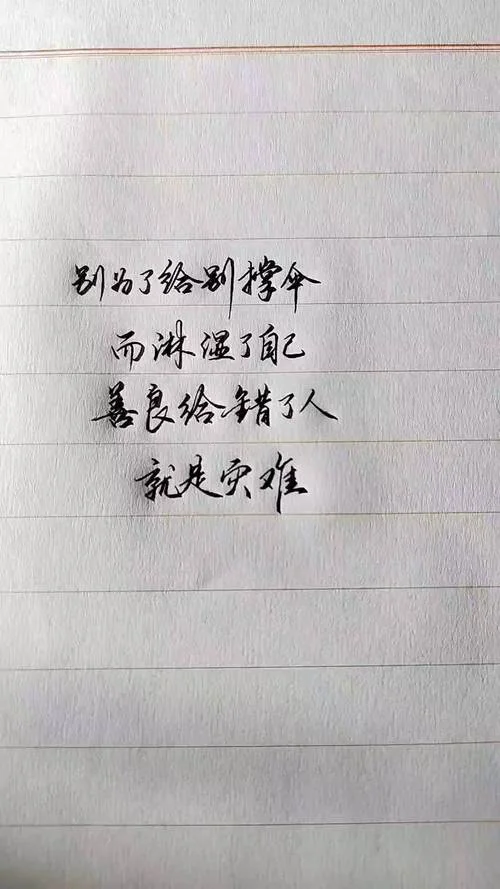 别为了给别撑伞
而淋湿了自己
善良给错了人
就是灾难